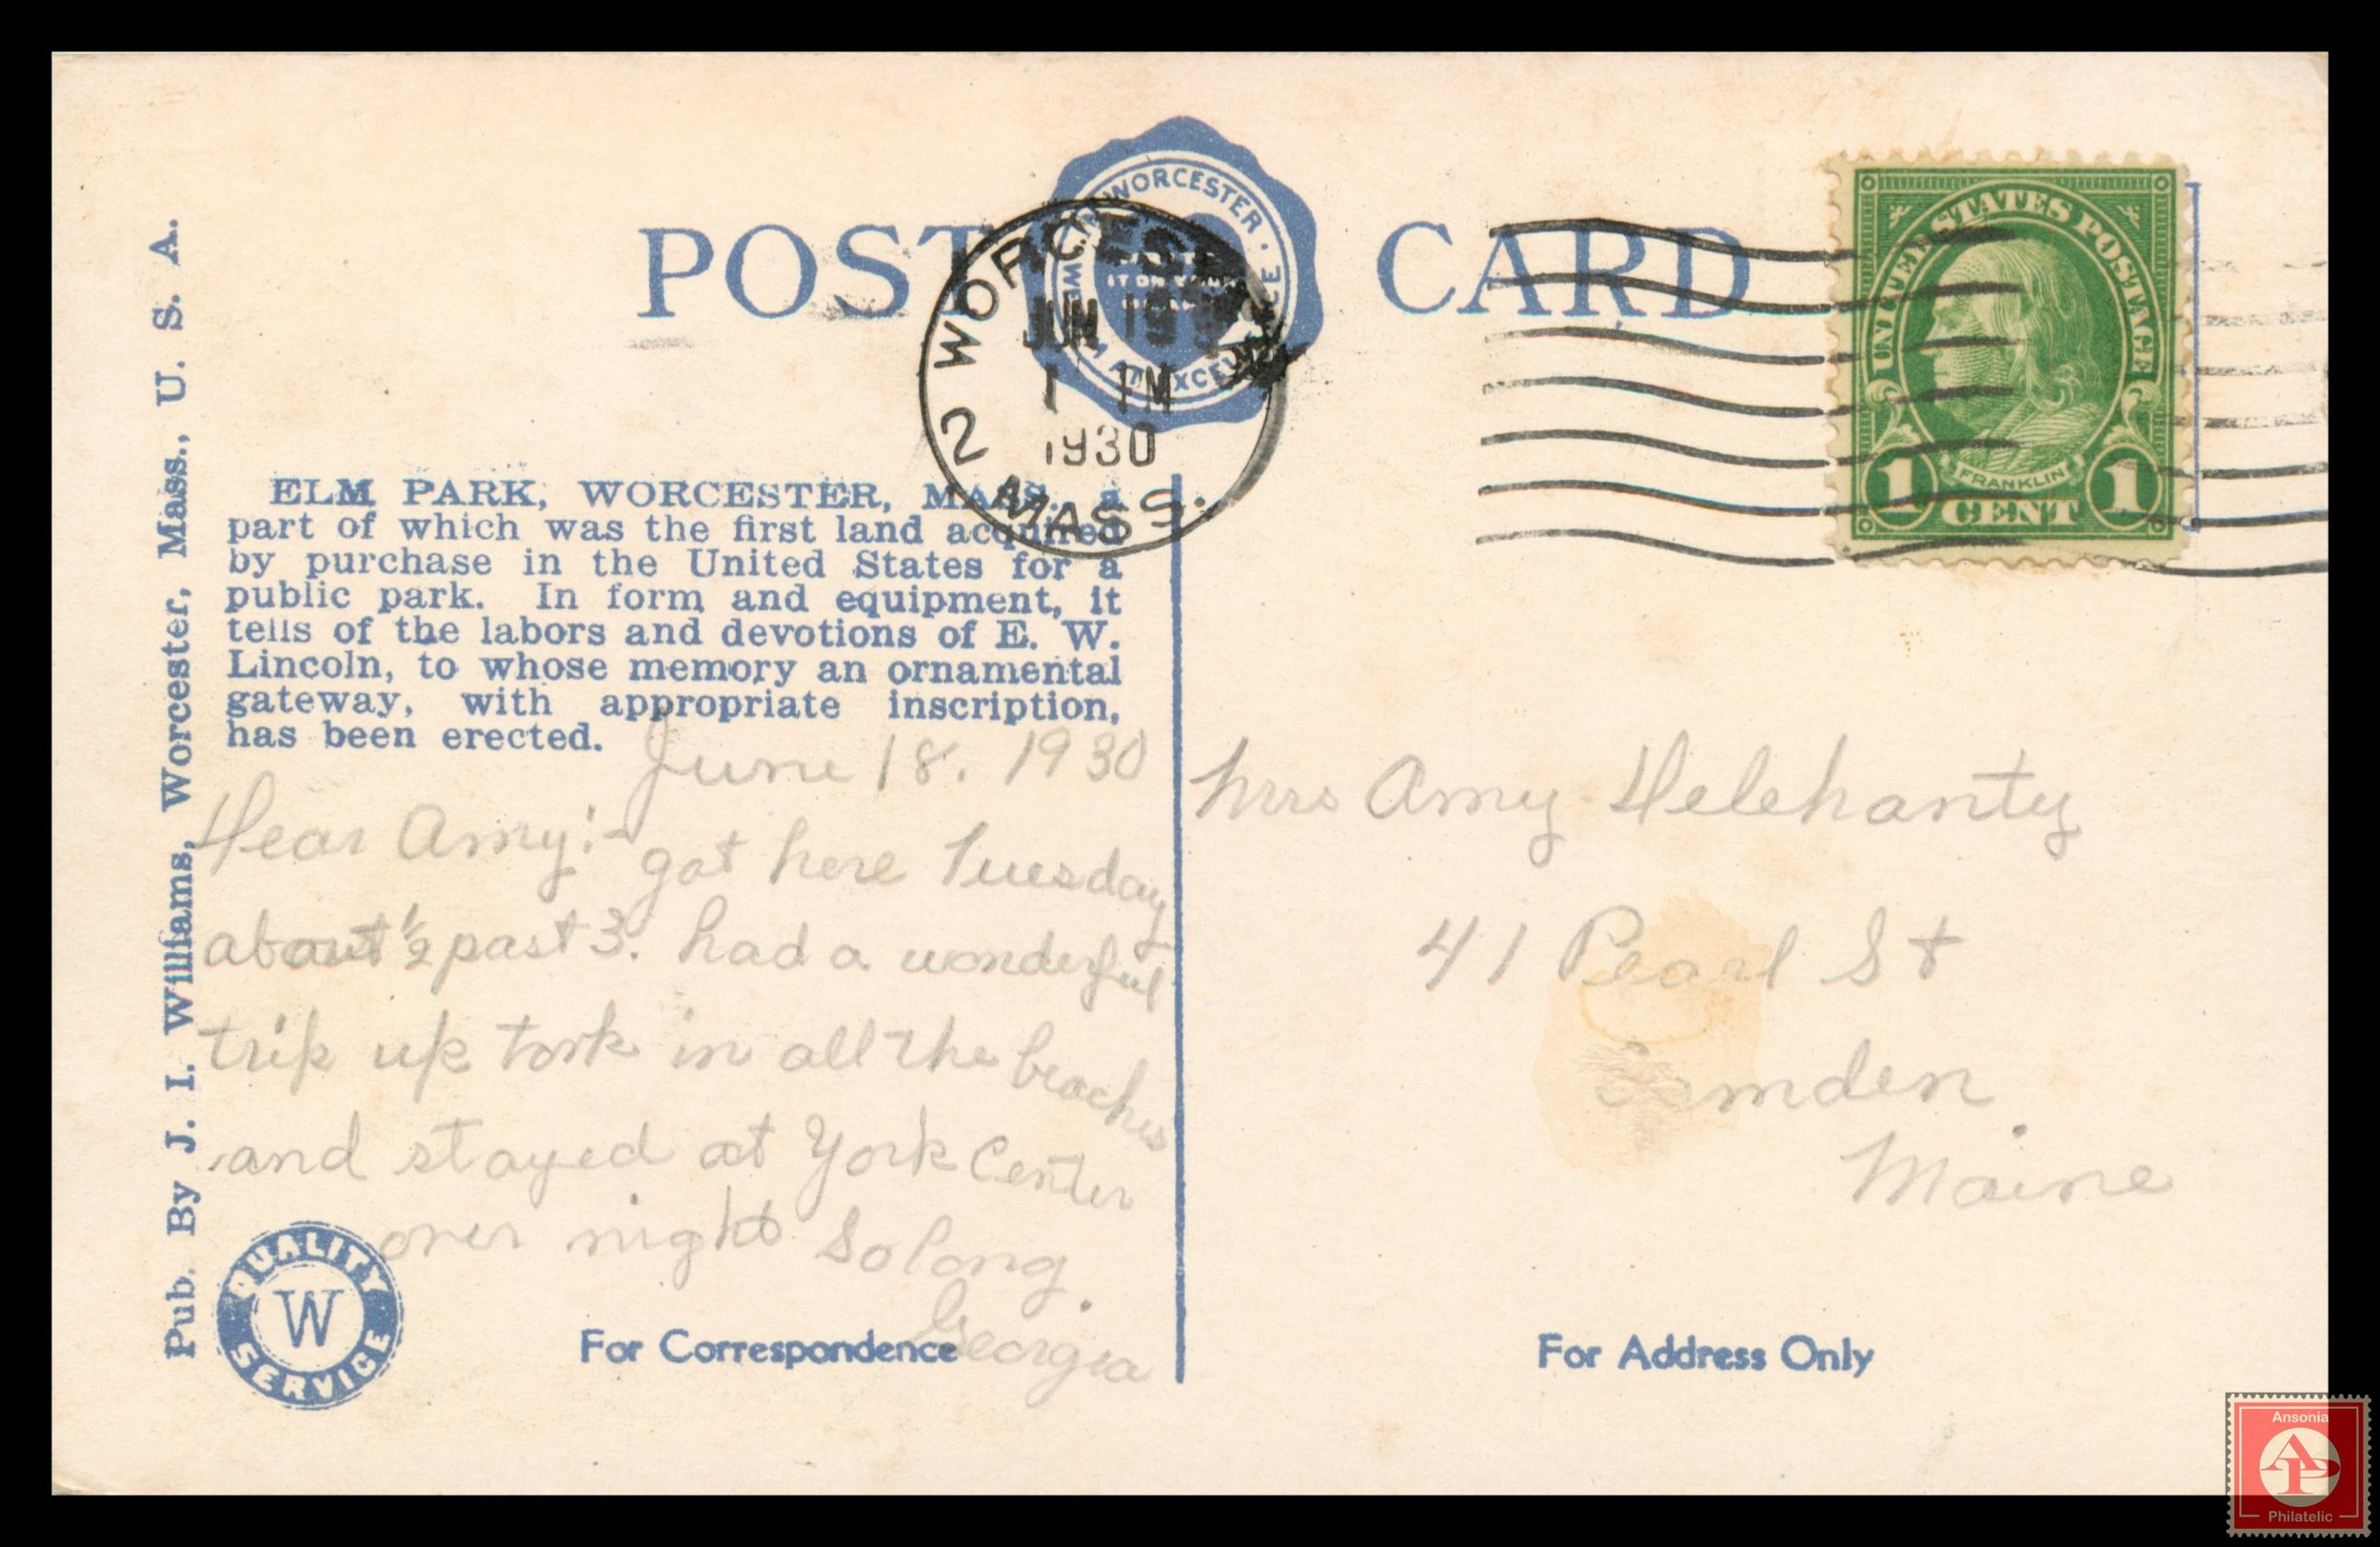 POST CARD
WORCESTER
WORCESTER
JUN 19
1 PM
1930
2
MASS.
UNITED STATES POSTAGE
FRANKLIN
1 CENT 1
Pub. By J. I. Williams, Worcester, Mass., U. S. A.
ELM PARK, WORCESTER, MASS., a
part of which was the first land acquired
by purchase in the United States for a
public park. In form and equipment, it
tells of the labors and devotions of E. W.
Lincoln, to whose memory an ornamental
gateway, with appropriate inscription,
has been erected.
June 18. 1930
Dear Amy:-
got here Tuesday
about ½ past 3. had a wonderful
trip up took in all the beaches
and stayed at York Center
over night So long.
Georgia
Mrs Amy Delehanty
41 Pearl St
Camden
Maine
QUALITY
W
SERVICE
For Correspondence
For Address Only
Ansonia
AP
Philatelic